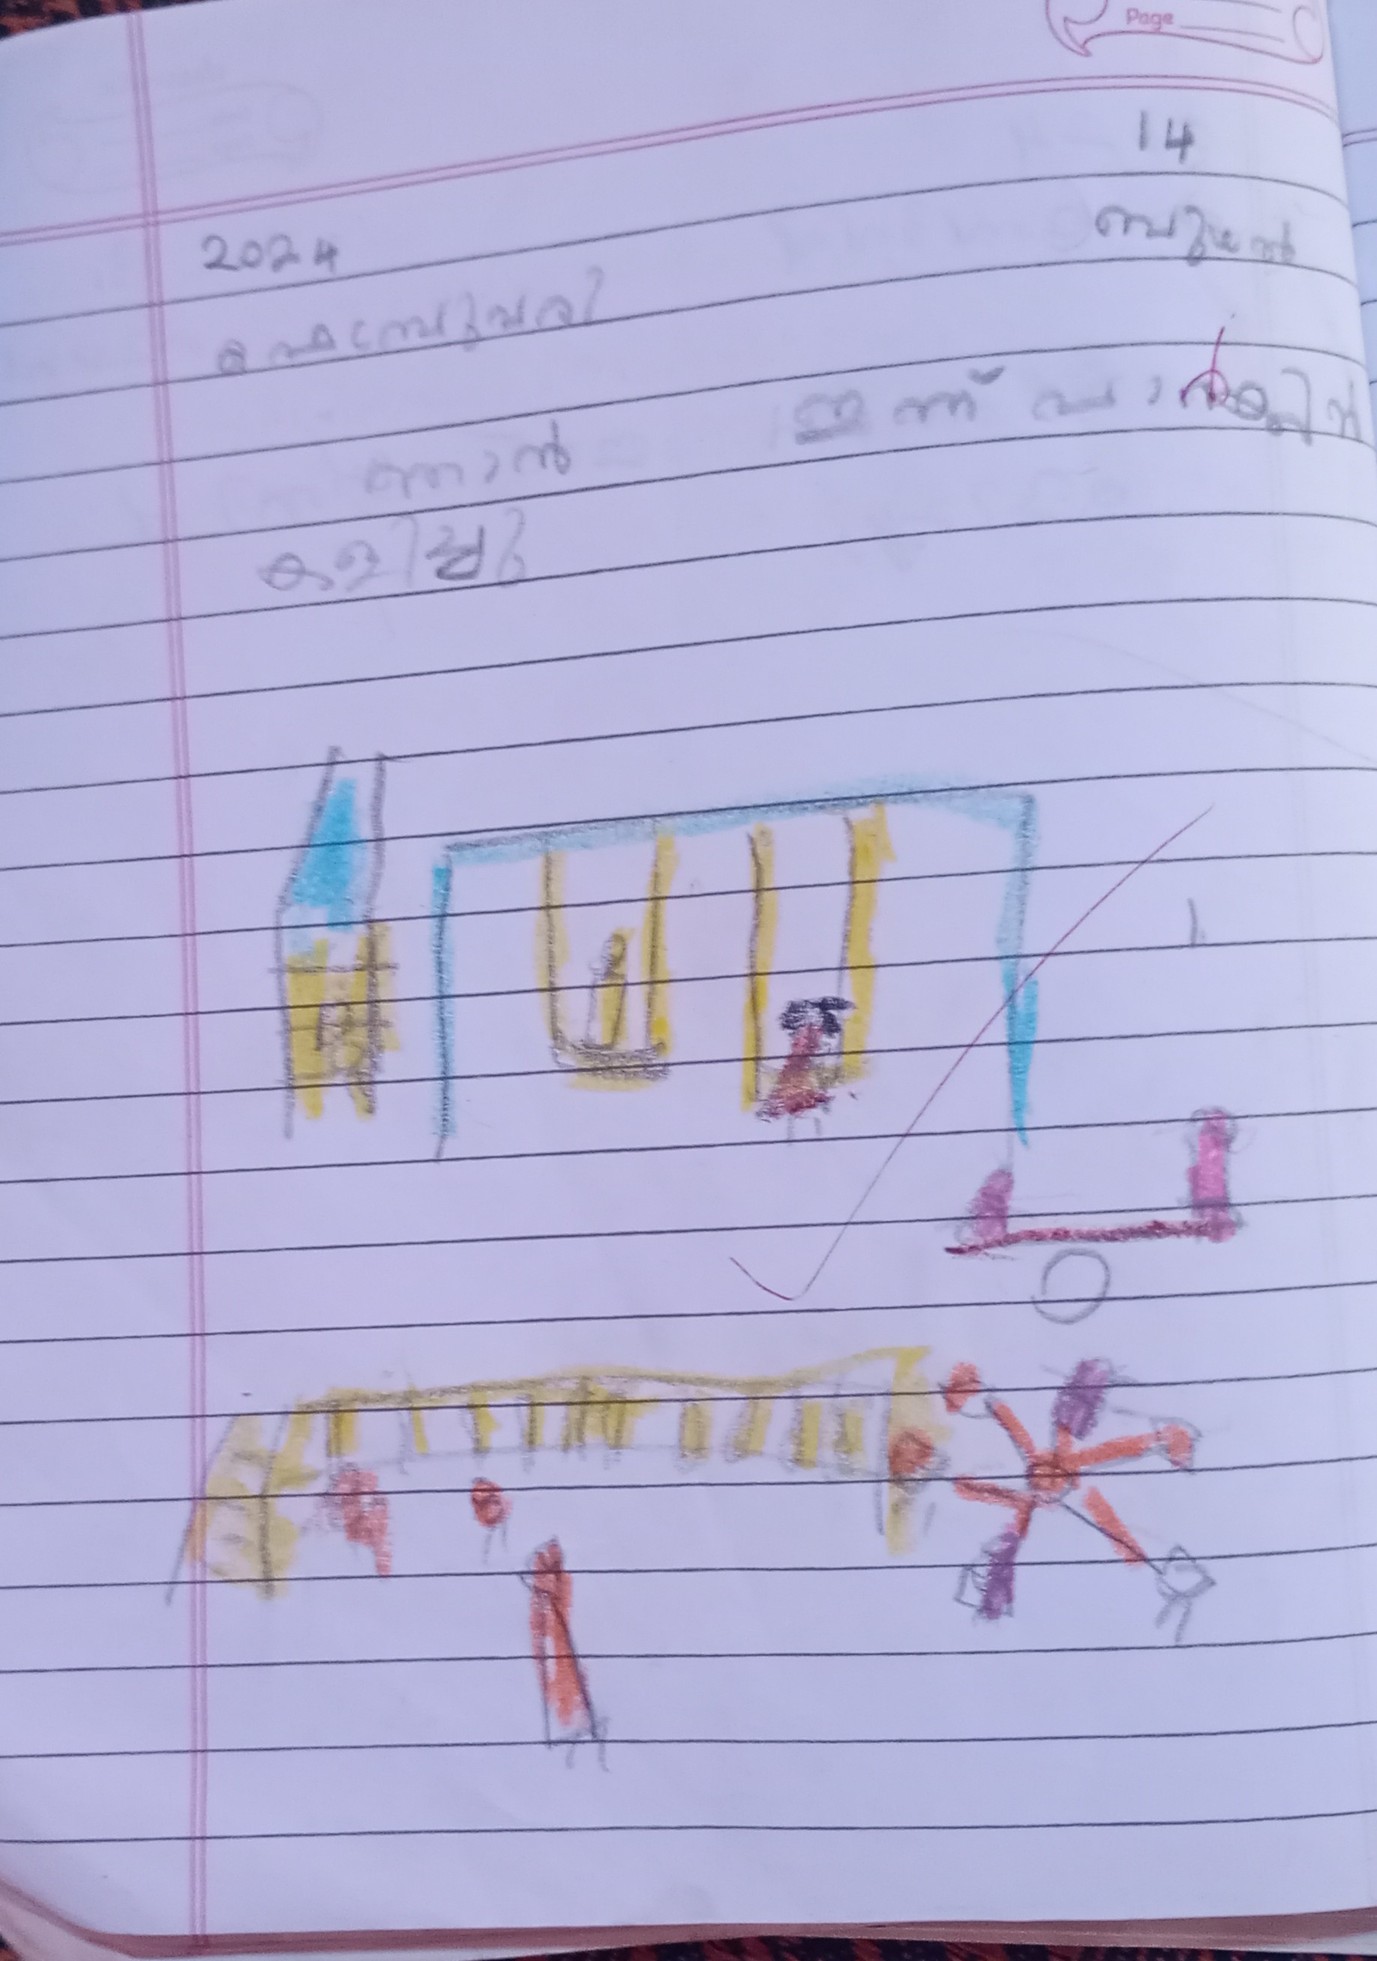 Page
14
2024 ബുധൻ
ഫെബ്രുവരി
ഇന്ന് പാർക്കിൽ
ഞാൻ
കളിച്ചു